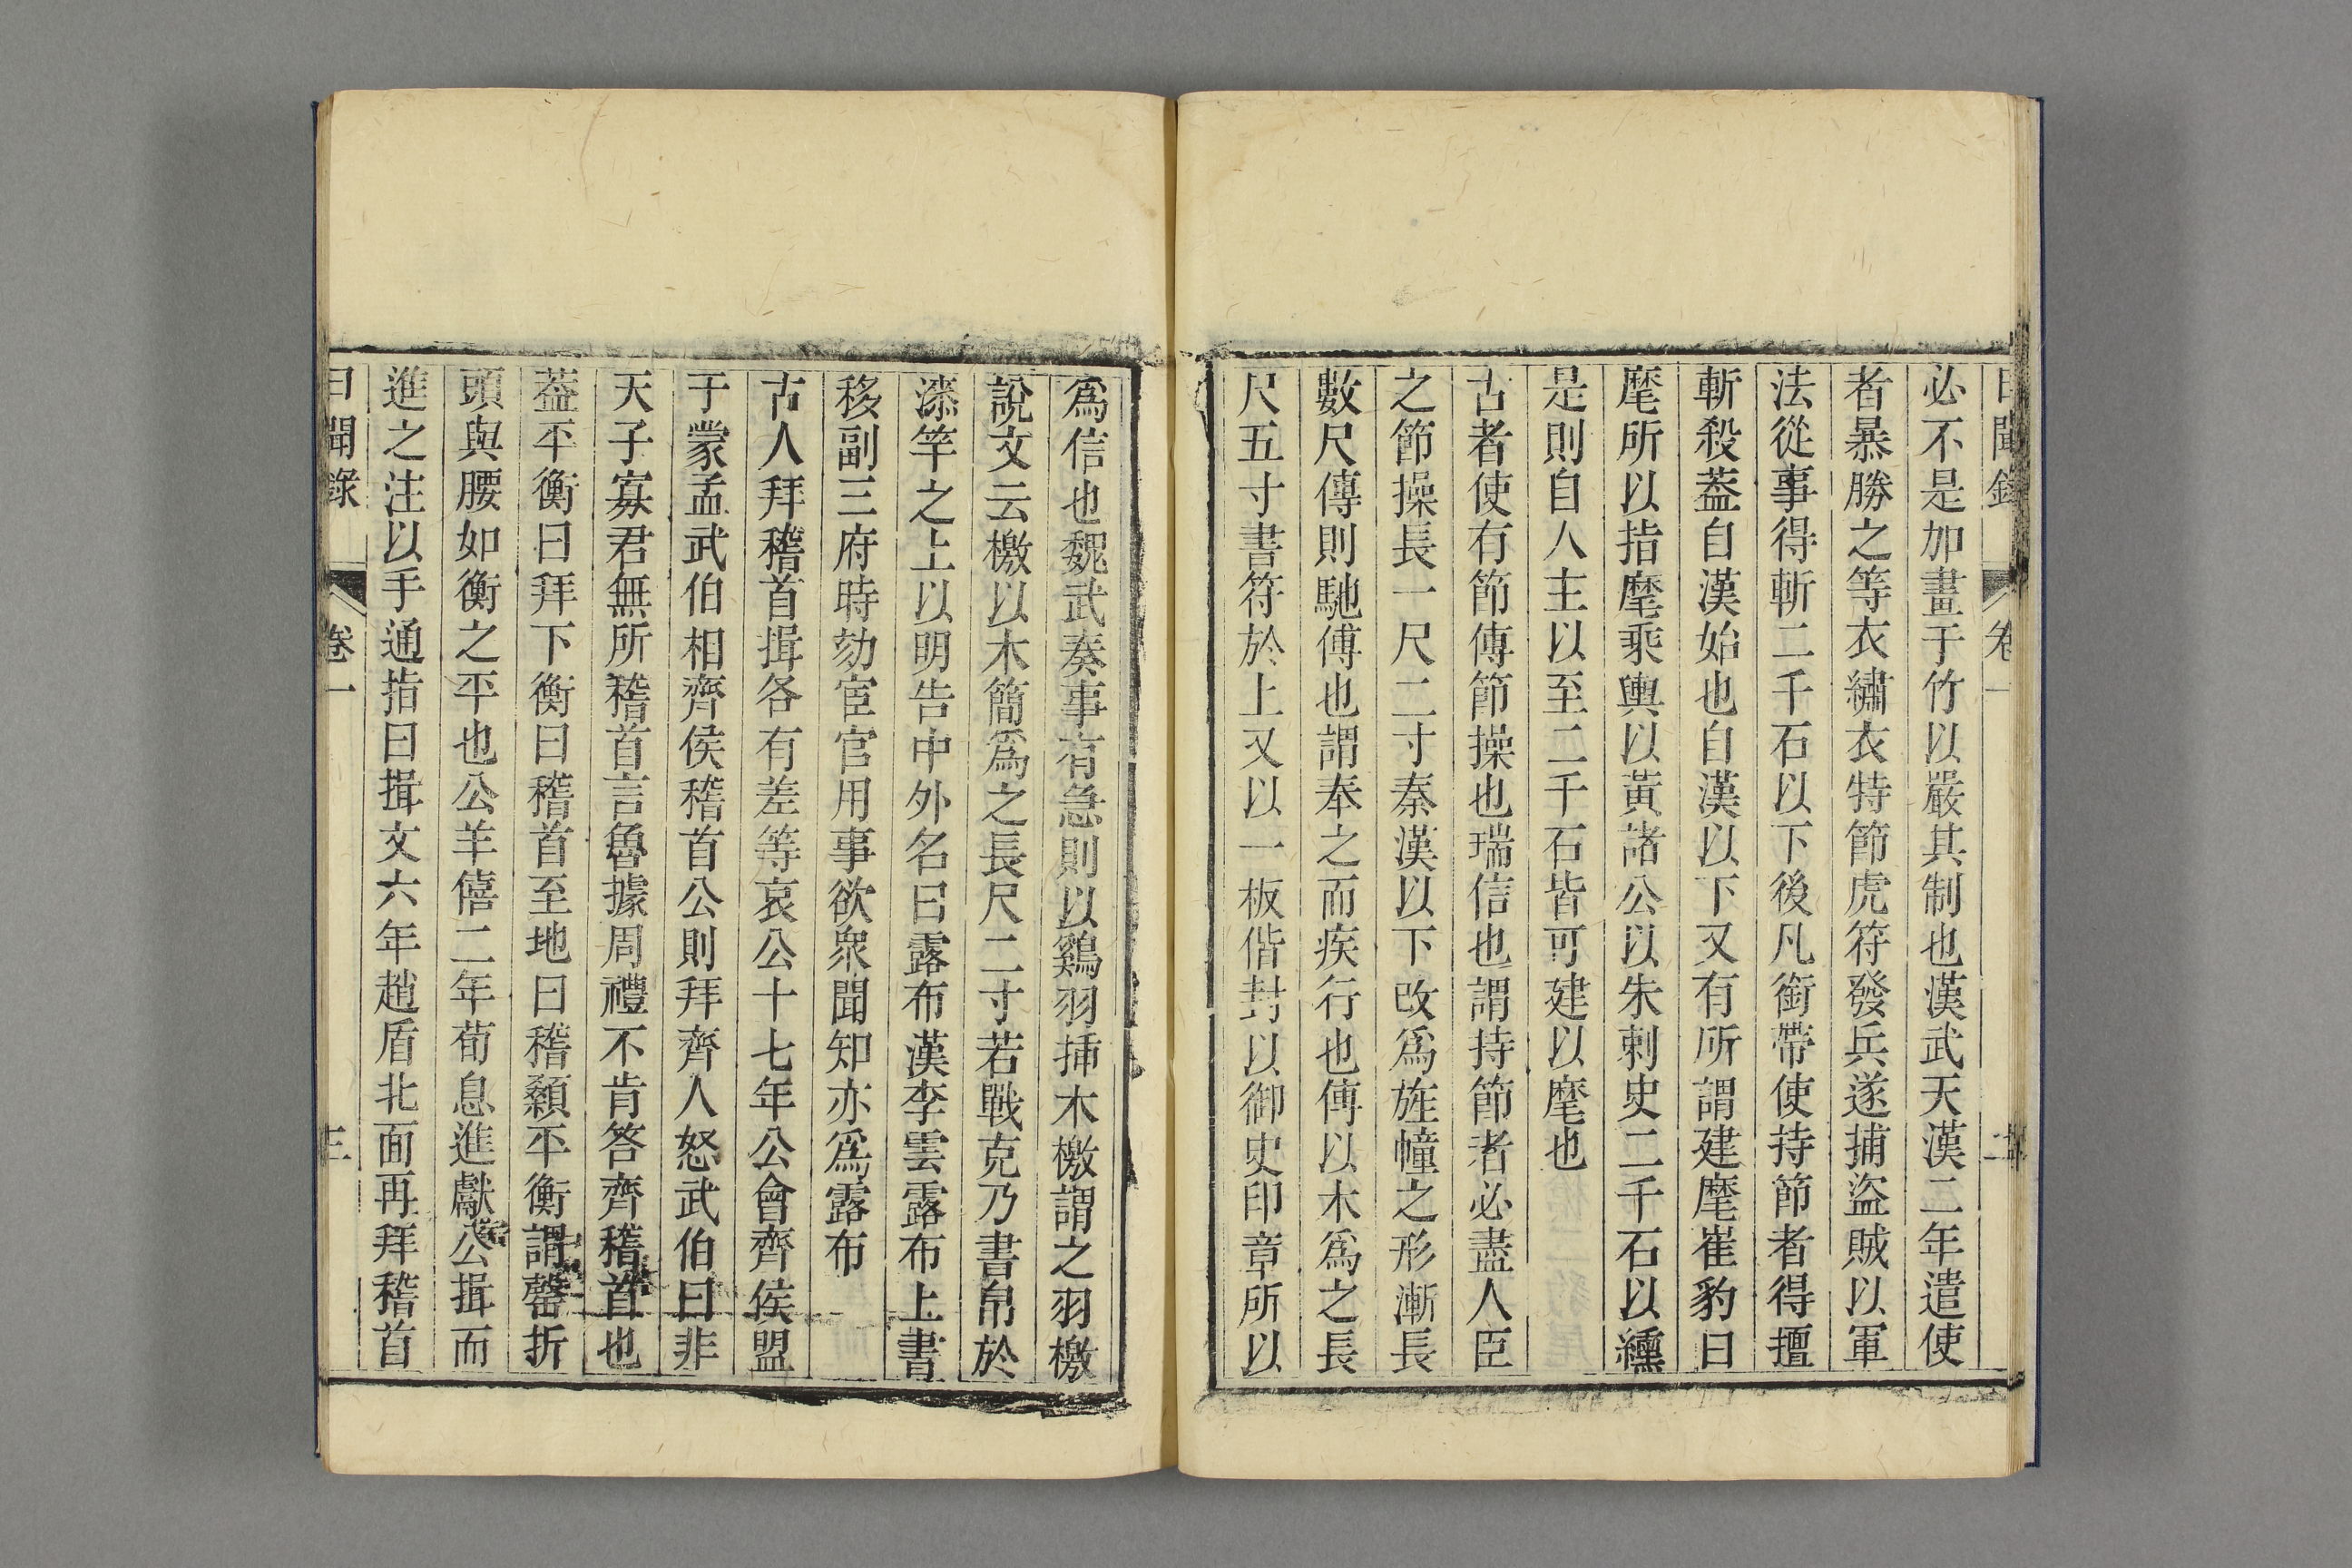 日聞錄 卷一 二
必不是加畫于竹以嚴其制也漢武天漢二年遣使
者暴勝之等衣繡衣特節虎符發兵遂捕盜賊以軍
法從事得斬二千石以下後凡銜帶使持節者得擅
斬殺葢自漢始也自漢以下又有所謂建麾崔豹曰
麾所以指麾乘輿以黃諸公以朱刺史二千石以纁
是則自人主以至二千石皆可建以麾也
古者使有節傳節操也瑞信也謂持節者必盡人臣
之節操長一尺二寸秦漢以下改爲旌幢之形漸長
數尺傳則馳傳也謂奉之而疾行也傳以木爲之長
尺五寸書符於上又以一板偕封以御史印章所以
爲信也魏武奏事有急則以鷄羽揷木檄謂之羽檄
說文云檄以木簡爲之長尺二寸若戰克乃書帛於
漆竿之上以明告中外名曰露布漢李雲露布上書
移副三府時劾宦官用事欲衆聞知亦爲露布
古人拜稽首揖各有差等哀公十七年公會齊侯盟
于蒙孟武伯相齊侯稽首公則拜齊人怒武伯曰非
天子寡君無所稽首言魯據周禮不肯答齊稽首也
葢平衡曰拜下衡曰稽首至地曰稽顙平衡謂罄折
頭與腰如衡之平也公羊僖二年荀息進獻公揖而
進之注以手通指曰揖文六年趙盾北面再拜稽首
日聞錄 卷一 三